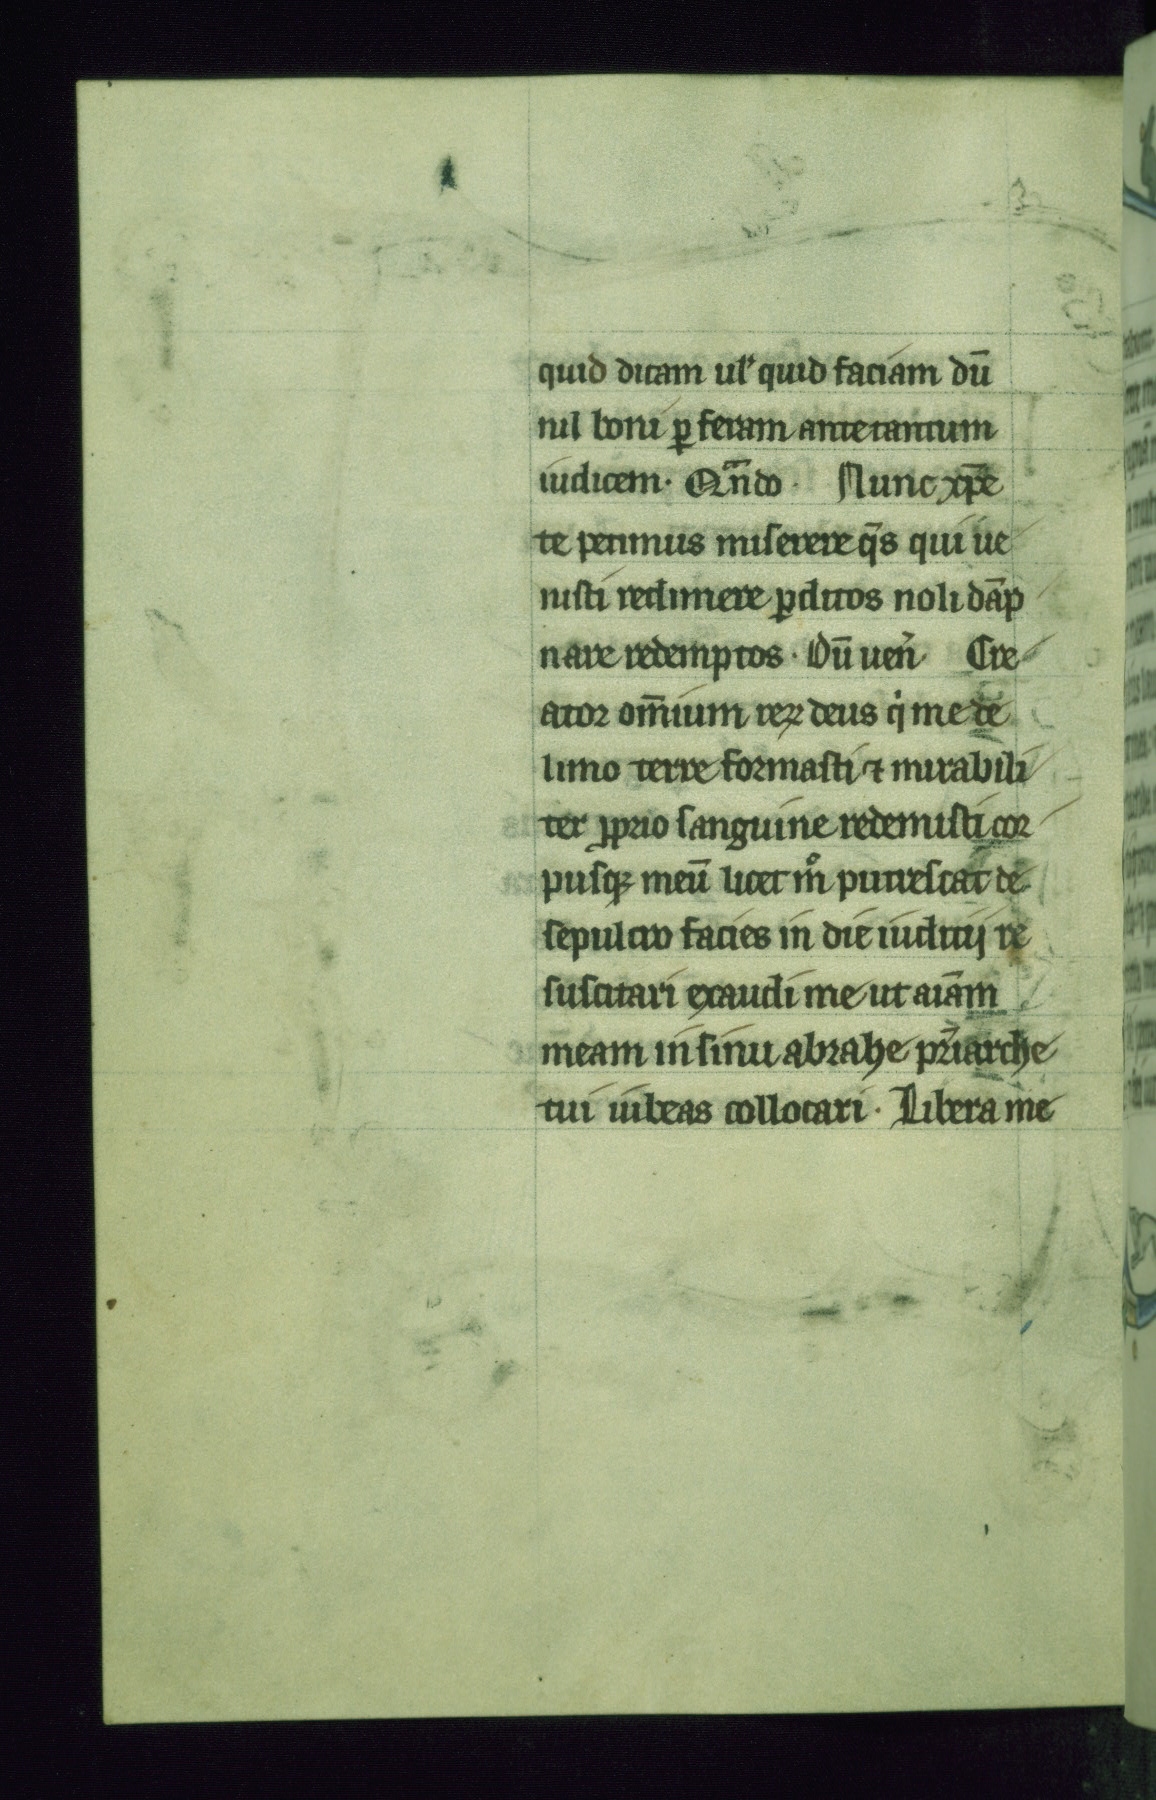 quid dicam ul' quid faciam dū
nil boni ꝑferam ante tantum
iudicem. Qn̄do. Nunc xp̄e
te petimus miserere q̄s qui ue
nisti redimere ꝑditos noli dāp
nare redemptos. Dū uen̄ Cre
ator om̄ium rerꝝ deus qi me de
limo terre formasti ⁊ mirabili
ter ꝓprio sanguine redemisti cor
pusqꝫ meū licet mͦ putrescat de
sepulcro facies in die iudicij re
suscitari exaudi me ut aīam
meam in sinu abrahe pr̄iarche
tui iubeas collocari. Libera me